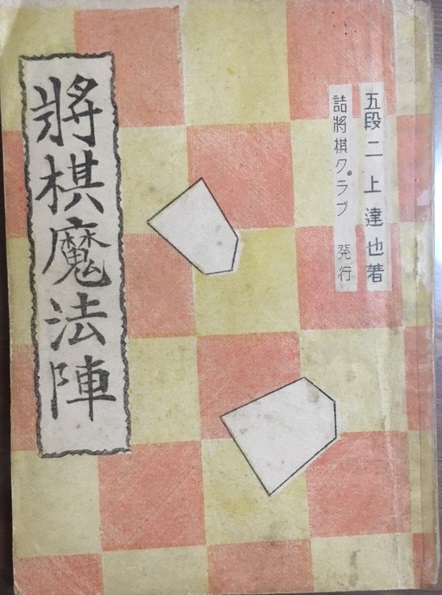 五段二上達也著
詰将棋クラブ 発行
將棋魔法陣